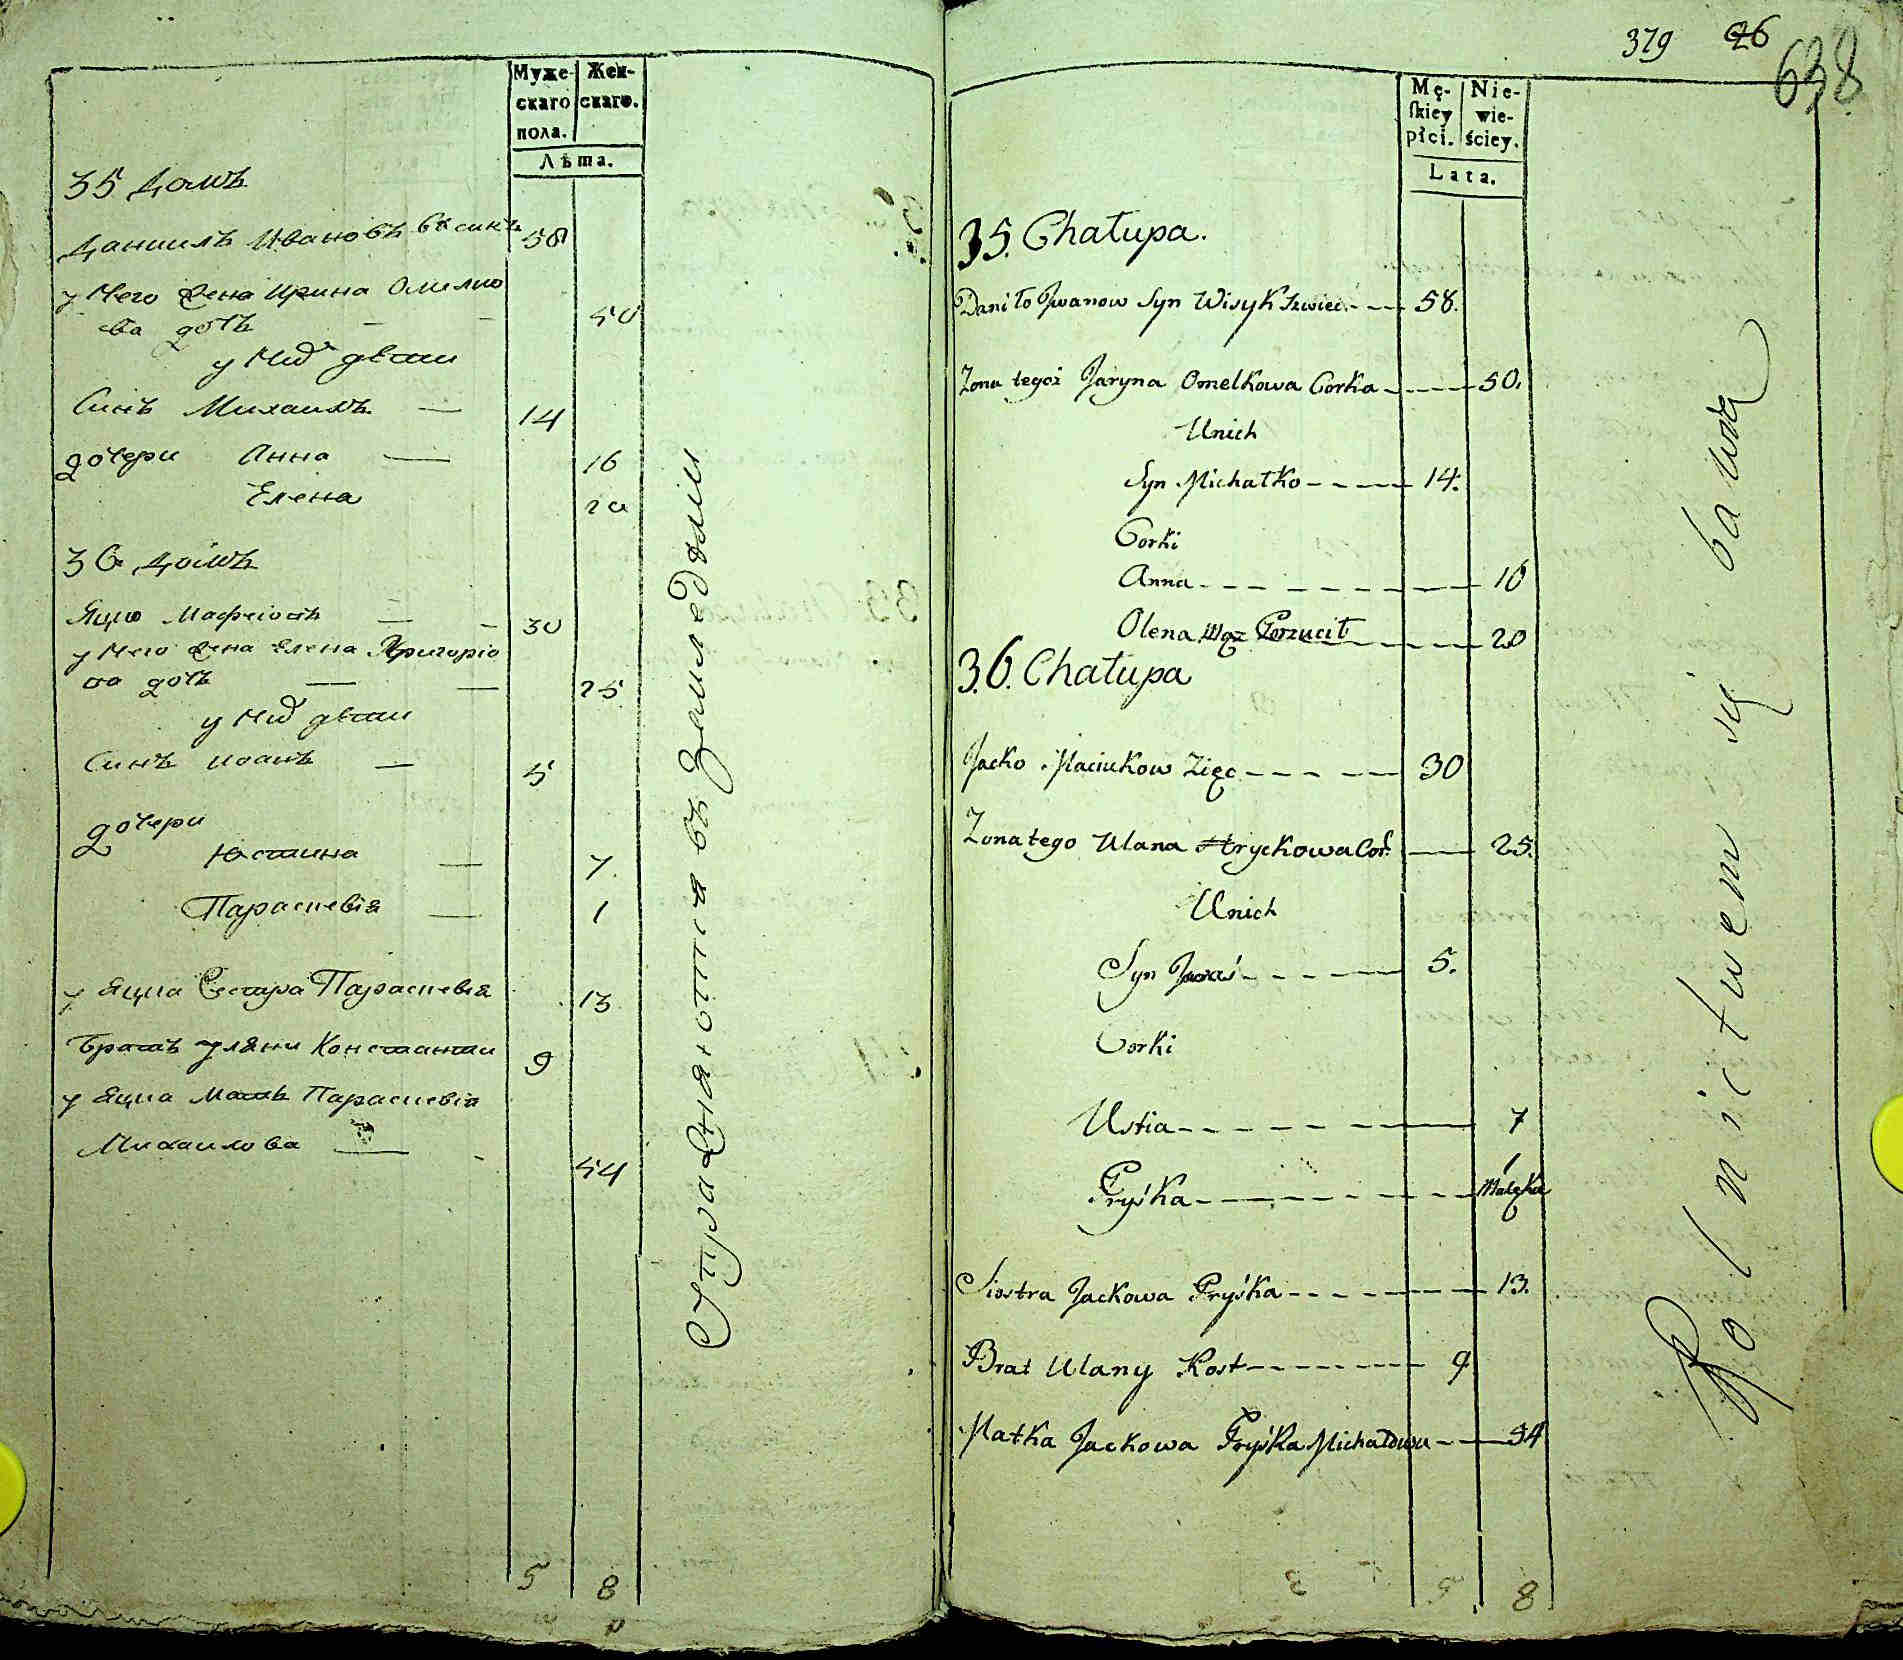 Муже-
скаго
пола.
Жен-
скаго.
Лѣта.
35 домъ
Даниилъ Ивановъ Висикъ 58
у него жена Ирина Омелко
ва дочь 50
у них дѣти
Синъ Михаилъ 14
дочери Анна 16
Елена 20
36 домъ
Яцко 30
у него жена Елена Григорїо
ва дочь 25
у них дѣти
Синъ Иоанъ 5
дочери
Юстина 7
Параскевїя 1
у Яцка Сестра Параскевїя 13
Братъ Уляни Константин 9
у Яцка Мать Параскевїя
Михаилова 54
5 8
Упражняются въ Земледѣлїи
379 26
638
Mę-
skiey
płci.
Nie-
wie-
ściey.
Lata.
35. Chałupa.
Daniło Jwanow Syn Wisyk Szwiec 58.
Zona tegoż Jaryna Omelkowa Corka 50.
Unich
Syn Michałko 14.
Corki
Anna 16
Olena Mąz Porzucił 20
36. Chałupa
Jacko Maciukow Zięc 30
Zona tego Ulana Hryckowa Cor. 25.
Unich
Syn Jwaś 5.
Corki
Ustia 7
Pryśka 1
Siostra Jackowa Pryśka 13.
Brat Ulany Kost 9
Matka Jackowa Pryśka Michałowa 54
5 8
Rolnictwem się bawią